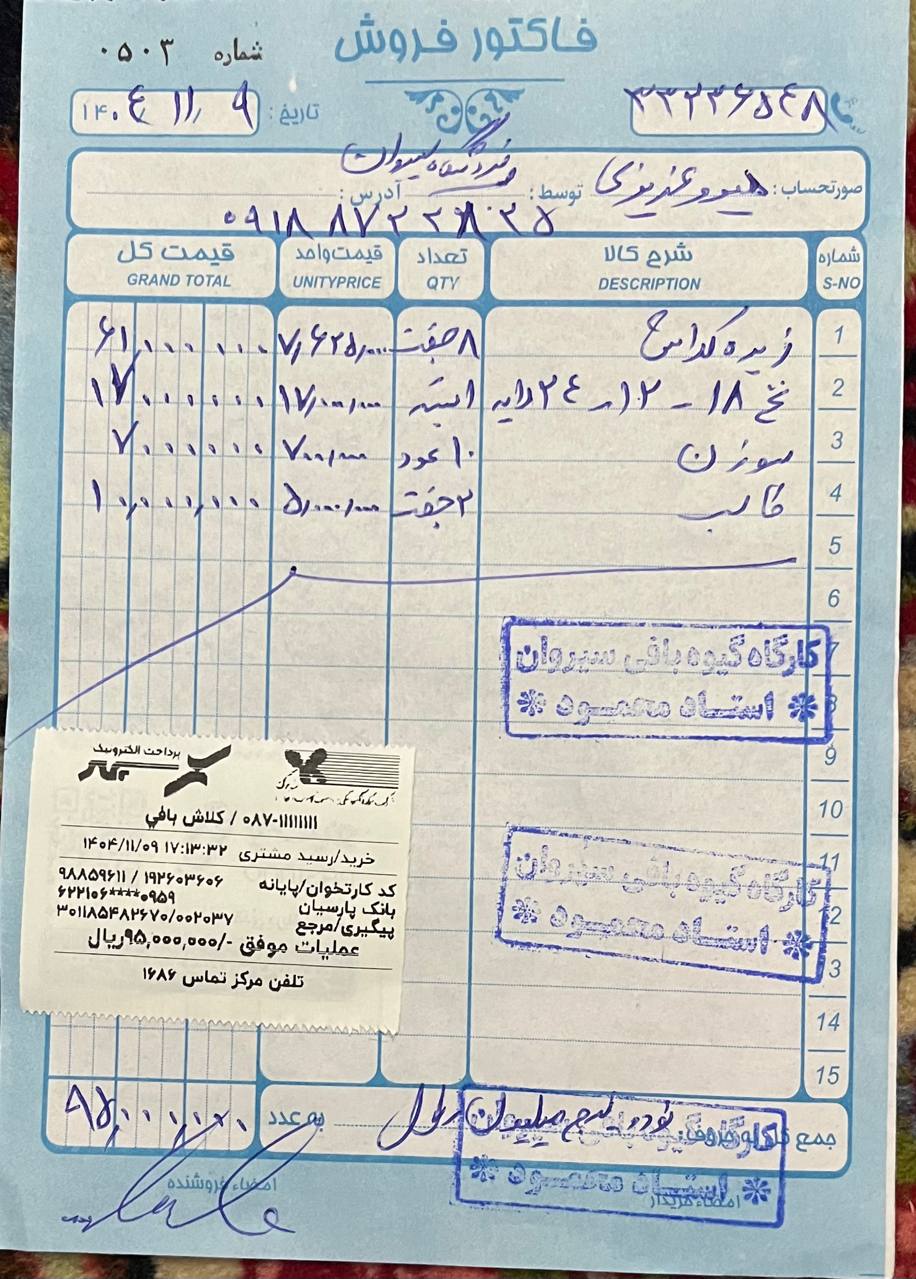 فاکتور فروش
شماره ۰۵۰۳
تاریخ: ۱۴۰۴/۱۱/۹
۳۳۲۳۶۵۴۸
صورتحساب: هیوو عزیزی توسط: فروشگاه سیروان آدرس:
شماره S-NO شرح کالا DESCRIPTION تعداد QTY قیمت واحد UNITYPRICE قیمت کل GRAND TOTAL
1 زیره کلاش ۸ جفت ۷,۶۲۵,۰۰۰ ۶۱,۰۰۰,۰۰۰
2 نخ ۱۸ - ۱۲ر ۲۴ لایه ۱۷,۰۰۰,۰۰۰ ۱۷,۰۰۰,۰۰۰
3 سوزن ۱۰ عدد ۷۰۰,۰۰۰ ۷,۰۰۰,۰۰۰
4 قالب ۲ جفت ۵,۰۰۰,۰۰۰ ۱۰,۰۰۰,۰۰۰
5
6
7
8
9
10
11
14
15
کارگاه گیوه بافی سیروان
استاد محمود
کارگاه گیوه بافی سیروان
استاد محمود
پرداخت الکترونیک
۰۸۷-۱۱۱۱۱۱۱۱ / کلاش بافي
خرید/رسید مشتری ۱۴۰۴/۱۱/۰۹ ۱۷:۱۳:۳۲
کد کارتخوان/پایانه ۹۸۸۵۹۶۱۱ / ۱۹۲۶۰۳۶۰۶
بانک پارسیان ۶۲۲۱۰۶****۰۹۵۹
پیگیری/مرجع ۳۰۱۱۸۵۴۸۲۶۷۰/۰۰۲۰۳۷
عملیات موفق -/۹۵,۰۰۰,۰۰۰ریال
تلفن مرکز تماس ۱۶۸۶
نود و پنج میلیون ریال به عدد ۹۵,۰۰۰,۰۰۰
کارگاه گیوه بافی سیروان
استاد محمود
امضاء خریدار
امضاء فروشنده